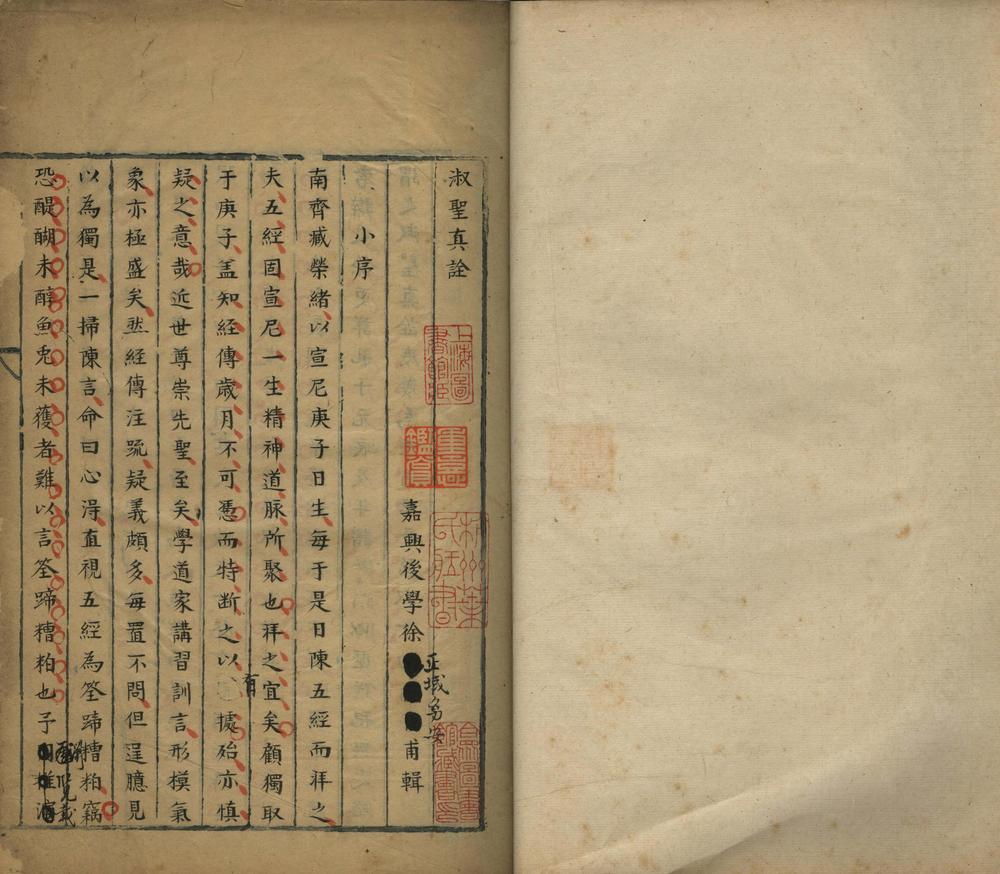 淑聖真詮
嘉興後學徐正域□安甫輯
小序
南齊臧榮緒以宣尼庚子日生每于是日陳五經而拜之
夫五經固宣尼一生精神道脉所聚也拜之宜矣顧獨取
于庚子盖知經傳歲月不可憑而特断之以有據殆亦慎
疑之意哉近世尊崇先聖至矣學道家講習訓言形模氣
象亦極盛矣然經傳注疏疑義頗多每置不問但逞臆見
以為獨是一掃陳言命曰心淂直視五經為筌蹄糟粕竊
恐醍醐未醇魚兎未獲者難以言筌蹄糟粕也子
上海圖書館藏
鑑賞
杭州葉氏藏書